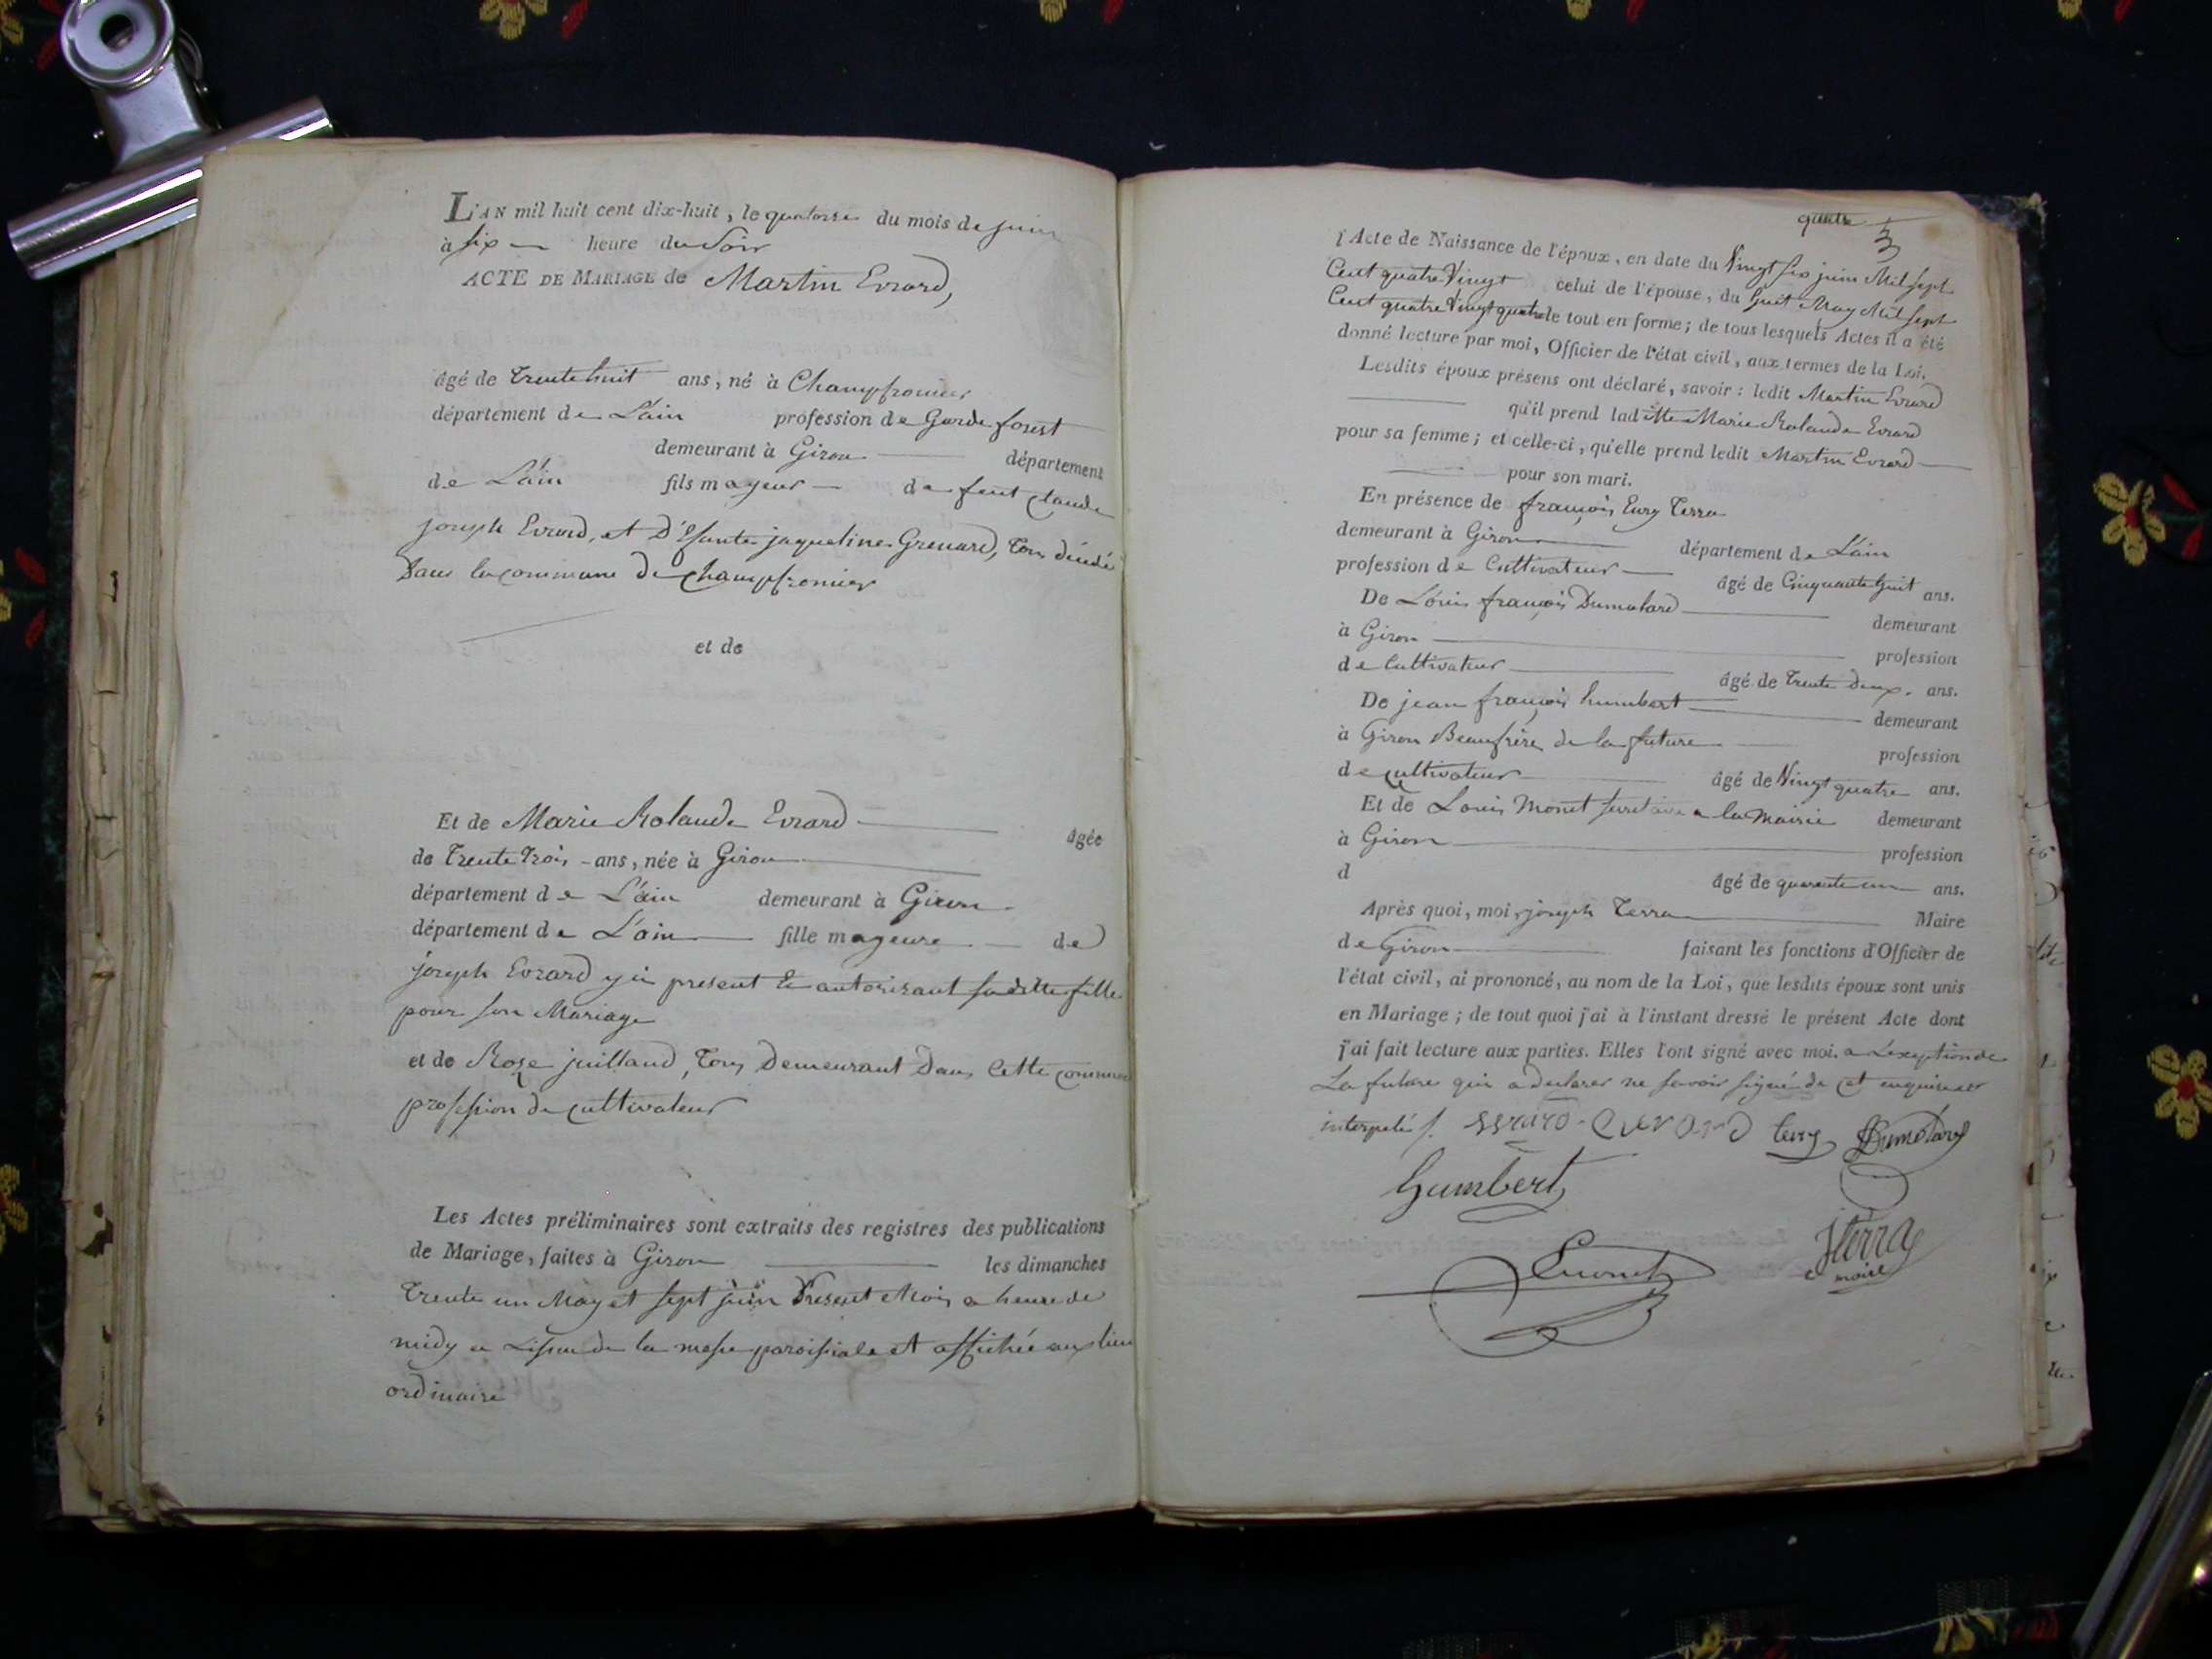 L'AN mil huit cent dix-huit, le quatorze du mois de juin
à six heure du Soir
ACTE DE MARIAGE de Martin Evrard,
âgé de Trente huit ans, né à Champfromier
département de L'ain profession de Garde forest
demeurant à Giron département
de L'ain fils majeur de feut Claude
joseph Evrard, et D'Efunte jaqueline Grenard, Tous décédé
Dans la commune De champfromier
et de
Et de Marie Rolande Evrard âgée
de Trente Trois ans, née à Giron
département de L'ain demeurant à Giron
département de L'ain fille majeure de
joseph Evrard y ci present et autorisant sa ditte fille
pour son Mariage
et de Roze juilland, Tous Demeurant Dans Cette commune
profession de cultivateur
Les Actes préliminaires sont extraits des registres des publications
de Mariage, faites à Giron les dimanches
Trente un May et sept juin Present Mois a heure de
midy a L'issue de la messe paroissiale et affichée aux lieu
ordinaire
quatre
3
l'Acte de Naissance de l'époux, en date du Vingt six juin Mil sept
Cent quatre Vingt celui de l'épouse, du huit May Mil sept
Cent quatre Vingt quatre le tout en forme; de tous lesquels Actes il a été
donné lecture par moi, Officier de l'état civil, aux termes de la Loi.
Lesdits époux présens ont déclaré, savoir: ledit Martin Evrard
qu'il prend laditte Marie Rolande Evrard
pour sa femme; et celle-ci, qu'elle prend ledit Martin Evrard
pour son mari.
En présence de françois Eury Terra
demeurant à Giron département de L'ain
profession de Cultivateur âgé de Cinquante huit ans.
De Louis françois Dumolard demeurant
à Giron profession
de Cultivateur âgé de Trente Deux. ans.
De jean françois humbert demeurant
à Giron Beaufrère de la future profession
de cultivateur âgé de Vingt quatre ans.
Et de Louis Monet secretaire a la Mairie demeurant
à Giron profession
d âgé de quarente un ans.
Après quoi, moi, joseph Terra Maire
de Giron faisant les fonctions d'Officier de
l'état civil, ai prononcé, au nom de la Loi, que lesdits époux sont unis
en Mariage; de tout quoi j'ai à l'instant dressé le présent Acte dont
j'ai fait lecture aux parties. Elles l'ont signé avec moi. a L'exeption de
La future qui a declarer ne savoir signé de et enquise et
interpelé /. EVRARD EVERARD Dumolard
humbert
jterra
maire
Lmonet